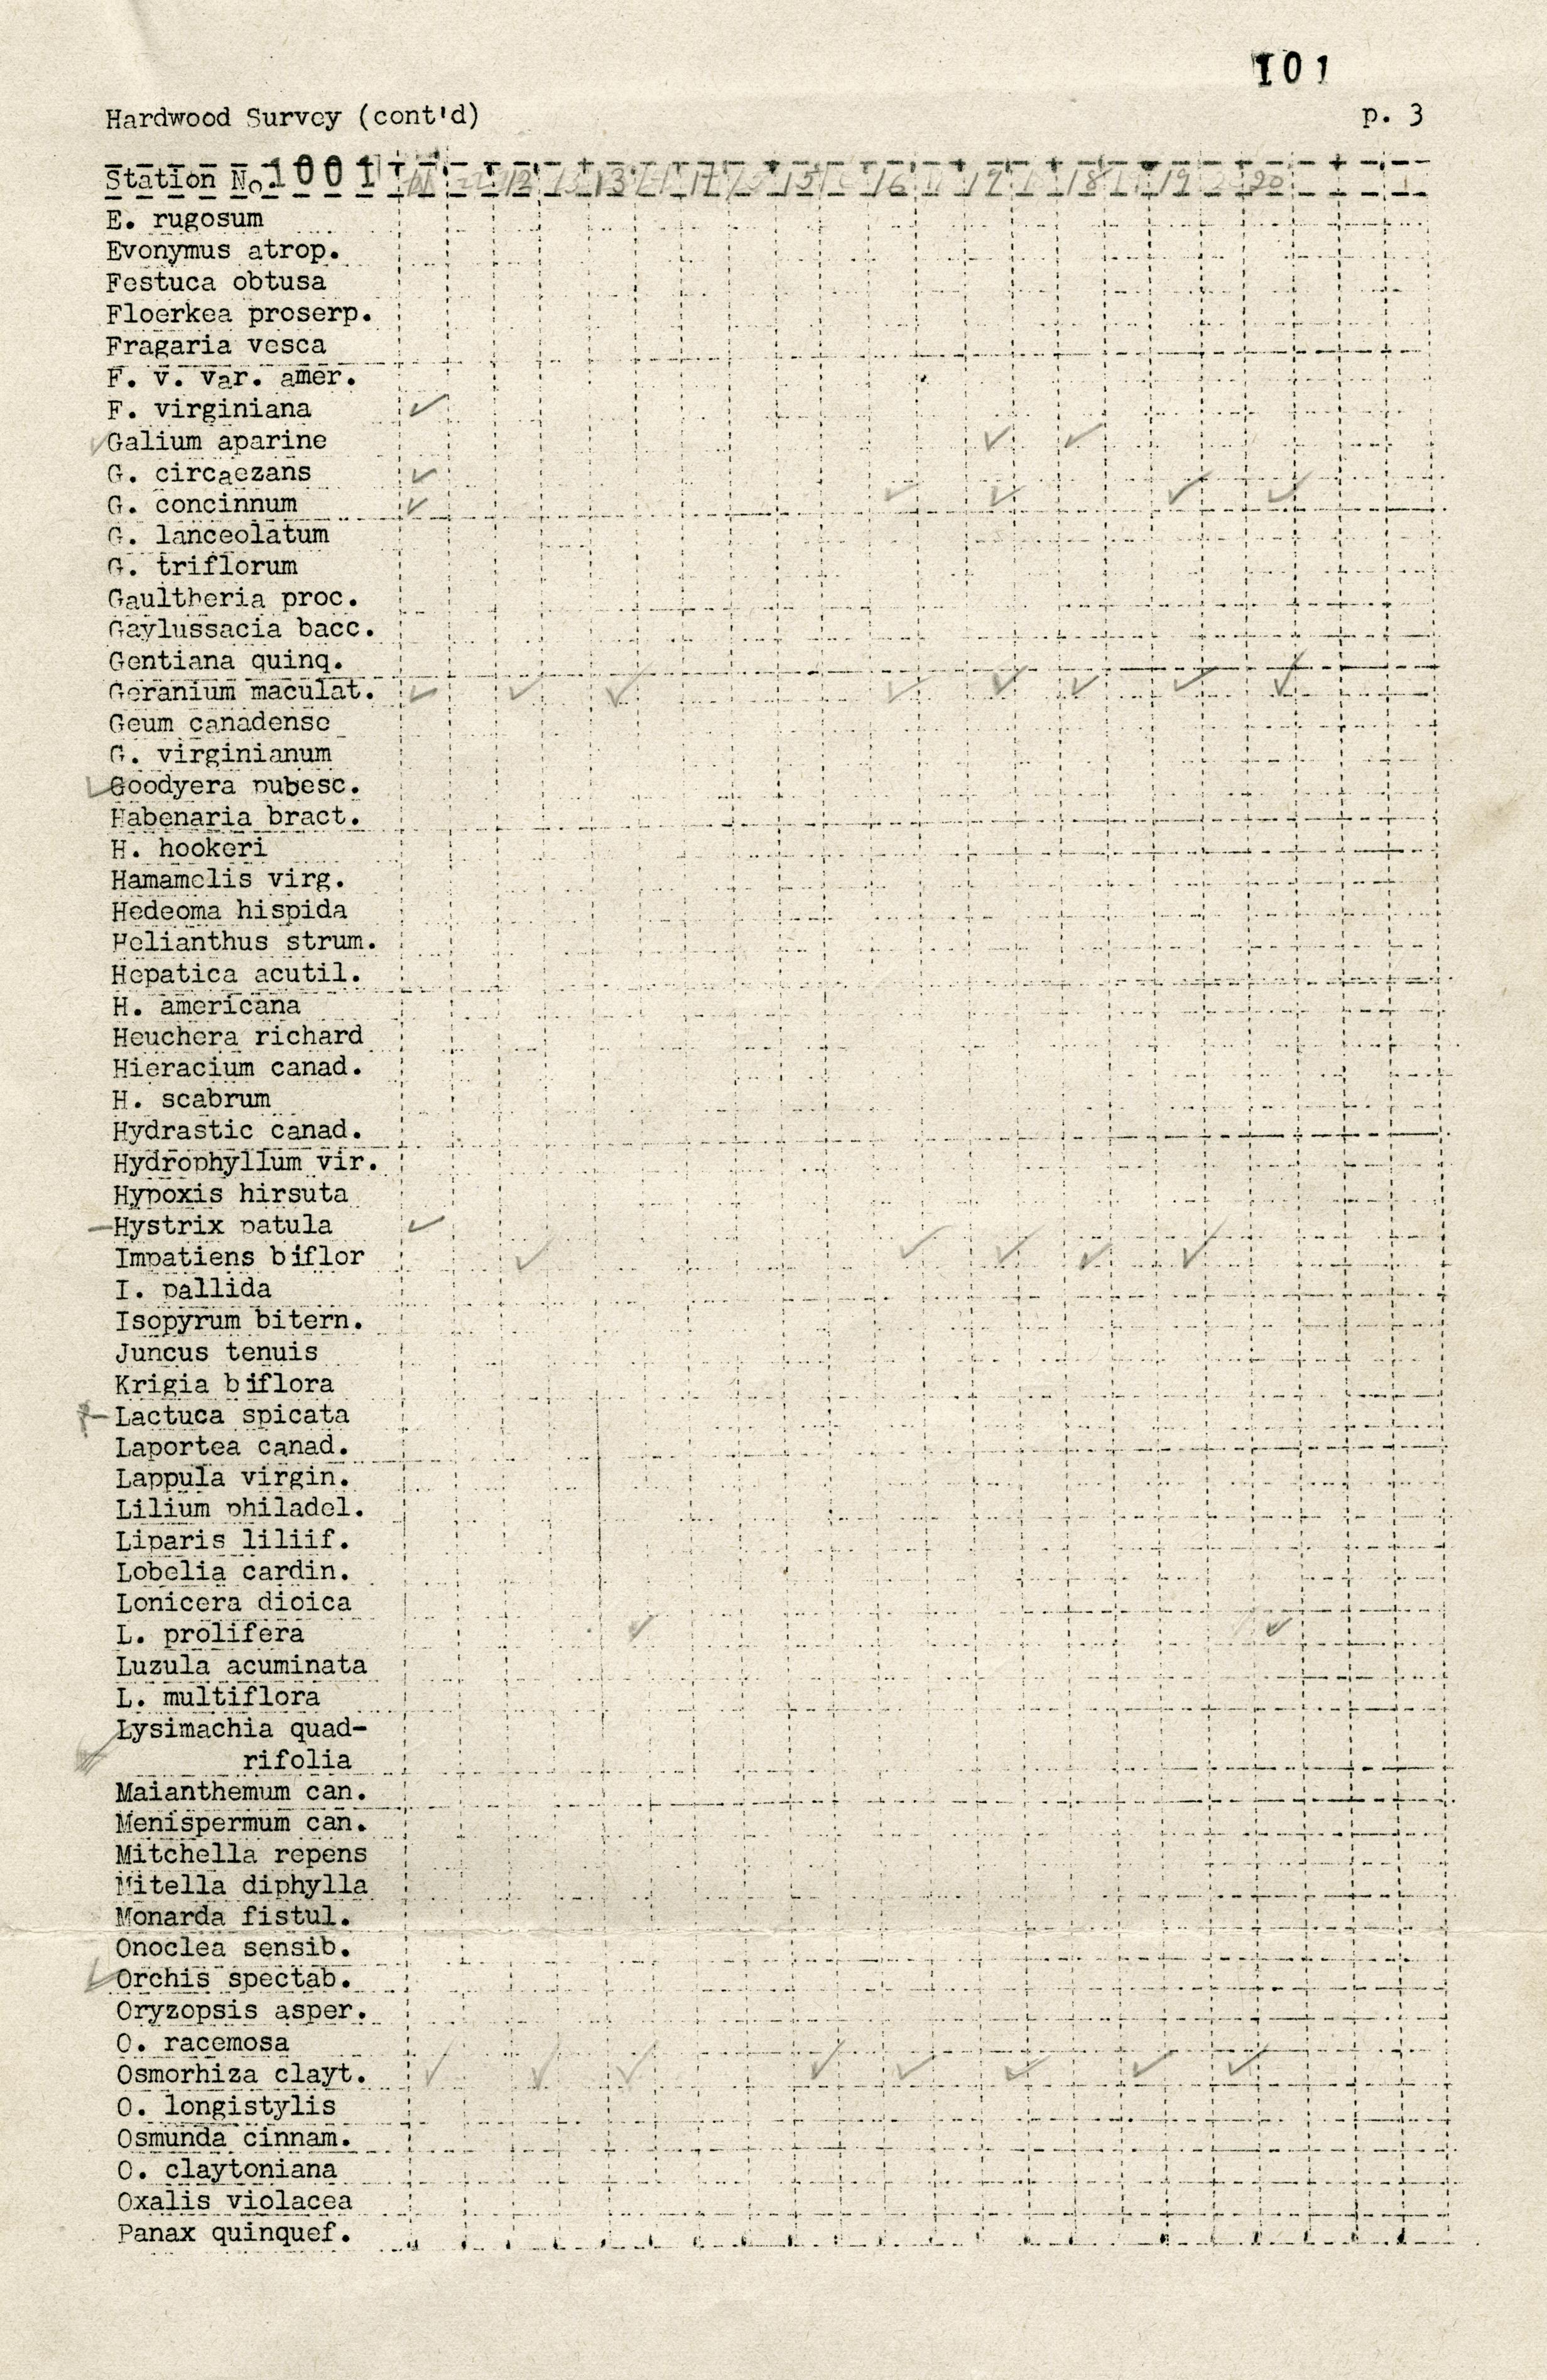 101
Hardwood Survey (cont'd) p. 3
Station No. 1001 11 12 13 14 15 16 17 18 19 20
E. rugosum
Evonymus atrop.
Festuca obtusa
Floerkea proserp.
Fragaria vesca
F. v. var. amer.
F. virginiana ✓
✓ Galium aparine ✓ ✓
G. circaezans ✓
G. concinnum ✓ ✓ ✓ ✓ ✓
G. lanceolatum
G. triflorum
Gaultheria proc.
Gaylussacia bacc.
Gentiana quinq.
Geranium maculat. ✓ ✓ ✓ ✓ ✓ ✓ ✓ ✓
Geum canadense
G. virginianum
✓ Goodyera pubesc.
Habenaria bract.
H. hookeri
Hamamelis virg.
Hedeoma hispida
Helianthus strum.
Hepatica acutil.
H. americana
Heuchera richard
Hieracium canad.
H. scabrum
Hydrastic canad.
Hydrophyllum vir.
Hypoxis hirsuta
— Hystrix patula ✓
Impatiens biflor ✓ ✓ ✓ ✓ ✓
I. pallida
Isopyrum bitern.
Juncus tenuis
Krigia biflora
Lactuca spicata
Laportea canad.
Lappula virgin.
Lilium philadel.
Liparis liliif.
Lobelia cardin.
Lonicera dioica
L. prolifera ✓ ✓
Luzula acuminata
L. multiflora
Lysimachia quad-
✓ rifolia
Maianthemum can.
Menispermum can.
Mitchella repens
Mitella diphylla
Monarda fistul.
Onoclea sensib.
✓ Orchis spectab.
Oryzopsis asper.
O. racemosa
Osmorhiza clayt. ✓ ✓ ✓ ✓ ✓ ✓ ✓ ✓
O. longistylis
Osmunda cinnam.
O. claytoniana
Oxalis violacea
Panax quinquef.